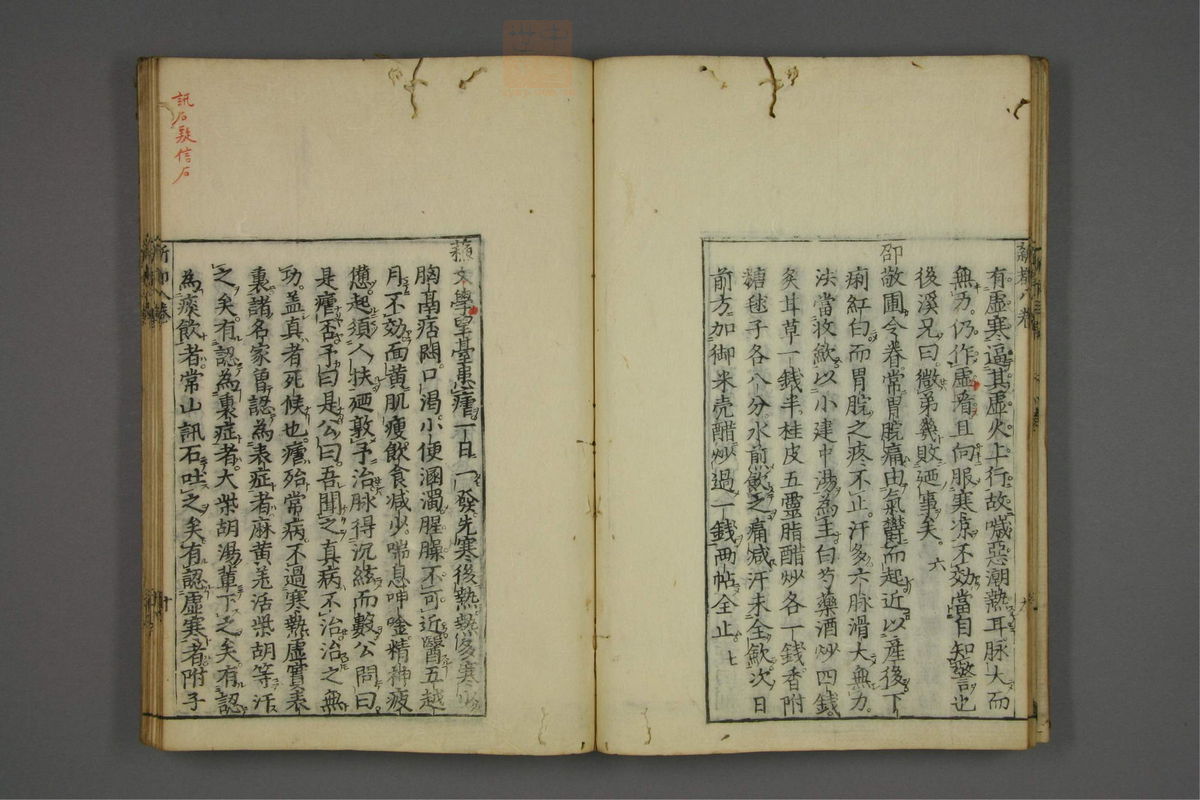 有虛寒逼其虛火上行故噦惡潮熱耳脉大而
無力仍作虛看且向服寒凉不効當自知警也
後溪兄曰微弟幾敗廼事矣 六
邵
敞圃令眷常胃脘痛由氣鬱而起近以產後下
痢紅白而胃脘之疼不止汗多六脉滑大無力
法當收歛以小建中湯為主白芍藥酒炒四錢
炙甘草一錢半桂皮五靈脂醋炒各一錢香附
糖毬子各八分水煎飲之痛减汗未全歛次日
前方加御米壳醋炒過一錢兩帖全止 七
蘓
文學皐臺患瘧一日一發先寒後熱熱多寒少
胸鬲痞悶口渴小便溷濁腥臊不可近醫五越
月不効面黄肌瘦飲食减少喘息呻唫精神疲
憊起須人扶廼敦予治脉得沉絃而數公問曰
是瘧否予曰是公曰吾聞之真病不治治之無
功盖真者死候也瘧殆常病不過寒熱虛實表
裏諸名家曾認為表症者麻黄羗活柴胡等汗
之矣有認為裏症者大柴胡湯輩下之矣有認
為痰飲者常山訊石吐之矣有認虛寒者附子
訊石疑信石